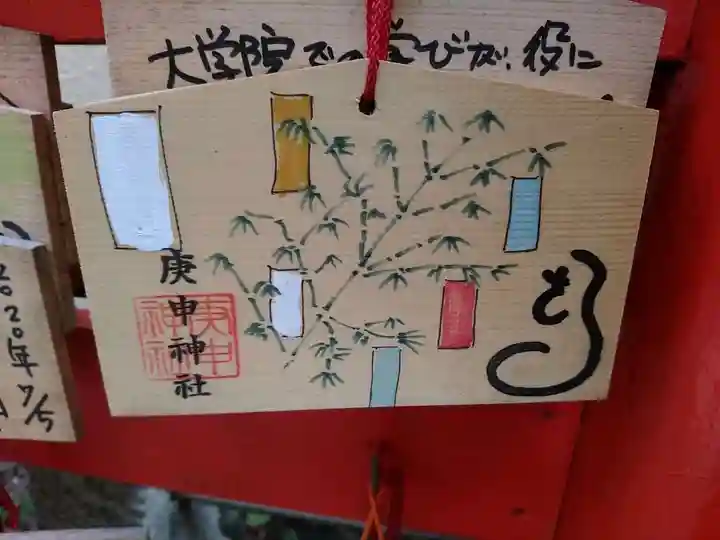 大学院での学びが、役に
庚申神社
庚申
神社
2020年7/5